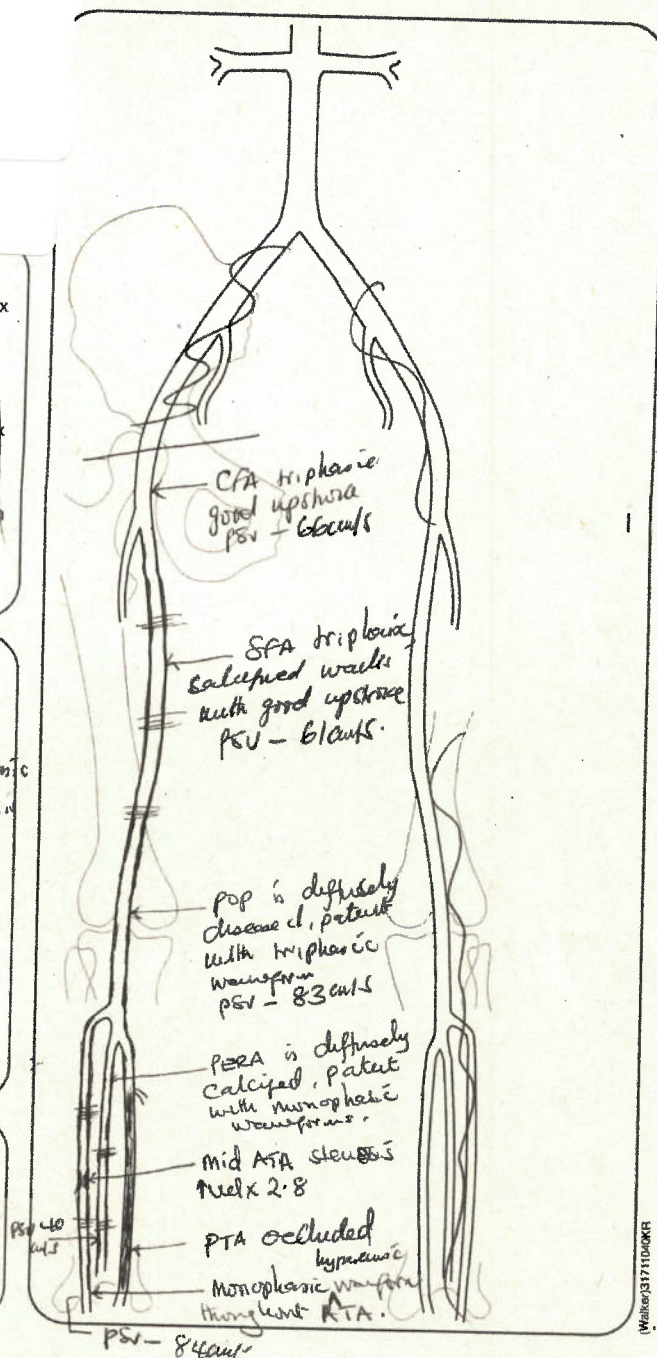 CFA triphasic
good upstroke
PSV - 66cm/s
SFA triphasic
calcified walls
with good upstroke
PSV - 61cm/s.
POP is diffusely
diseased, patent
with triphasic
waveform
PSV - 83cm/s
PERA is diffusely
calcified, patent
with monophasic
waveforms.
Mid ATA stenosis
↑Velx 2.8
PSV 40
cm/s
PTA occluded
hyperaemic
Monophasic waveform
throughout ATA.
PSV - 84cm/s
(Walker)31711040KR